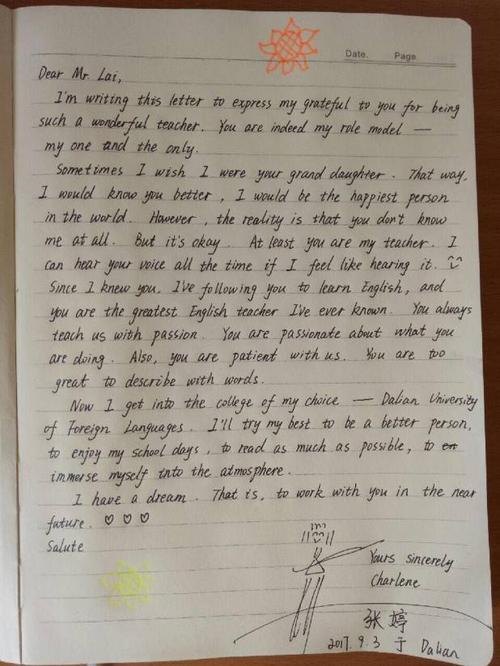 Date.    Page
Dear Mr. Lai,
I'm writing this letter to express my grateful to you for being
such a wonderful teacher. You are indeed my role model —
my one and the only.
Sometimes I wish I were your grand daughter. That way,
I would know you better, I would be the happiest person
in the world. However, the reality is that you don't know
me at all. But it's okay. At least you are my teacher. I
can hear your voice all the time if I feel like hearing it.
Since I knew you, I've following you to learn English, and
you are the greatest English teacher I've ever known. You always
teach us with passion. You are passionate about what you
are doing. Also, you are patient with us. You are too
great to describe with words.
Now I get into the college of my choice — Dalian University
of Foreign Languages. I'll try my best to be a better person,
to enjoy my school days, to read as much as possible, to
immerse myself into the atmosphere.
I have a dream. That is, to work with you in the near
future. ♡ ♡ ♡
Salute
Yours sincerely
Charlene
张婷
2017.9.3 于 Dalian